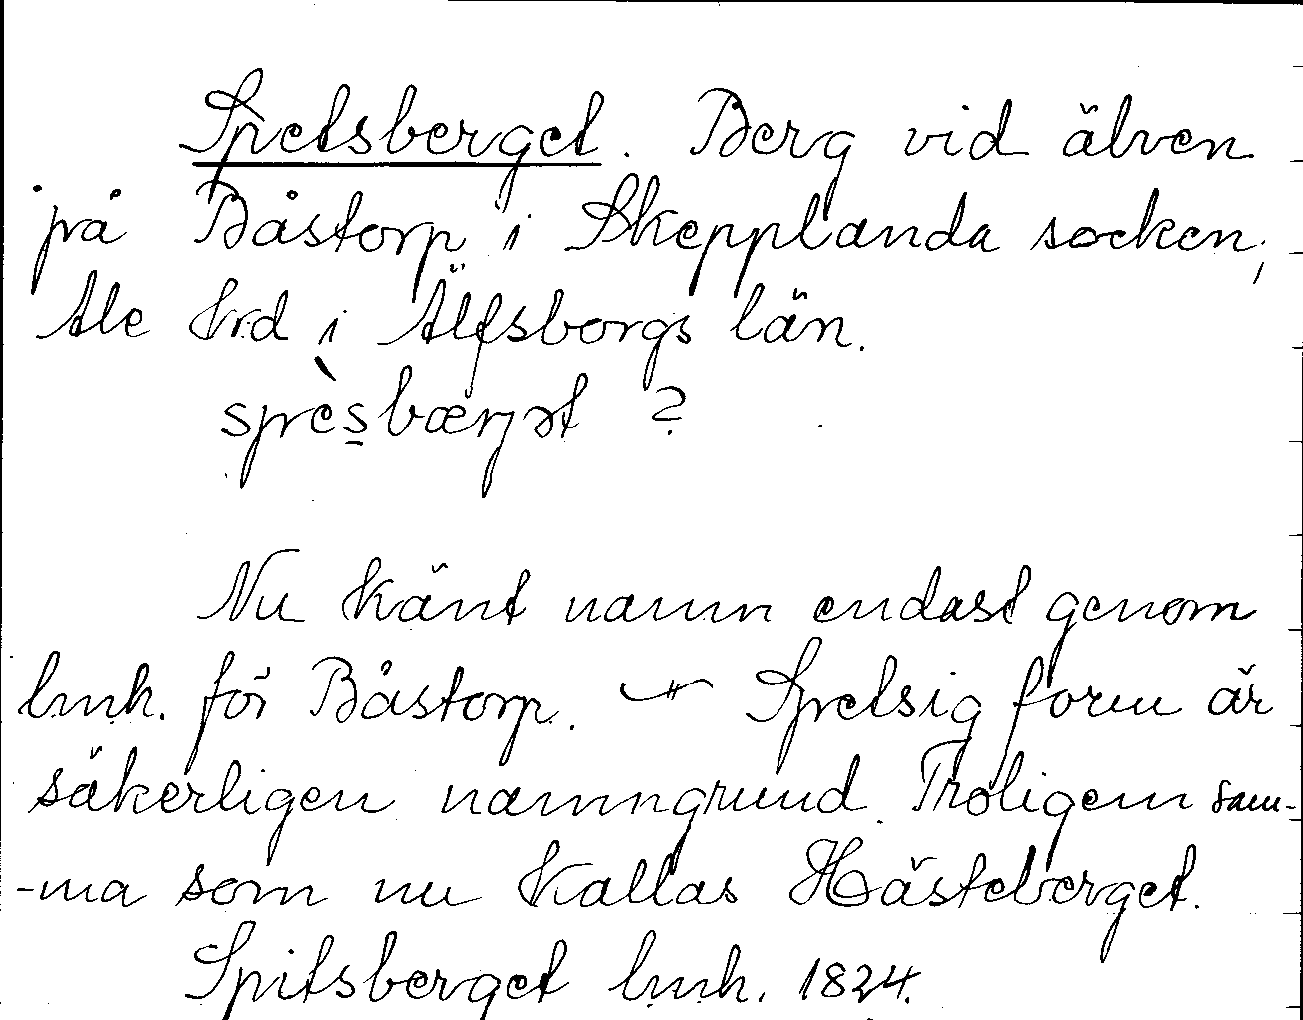 Spetsberget. Berg vid älven
på Båstorp i Skepplanda socken,
Ale hrd i Älfsborgs län.
spès̲bærjət ?
Nu känt namn endast genom
lmh. för Båstorp. Spetsig form är
säkerligen namngrund. Troligen sam-
-ma som nu kallas Hästeberget.
Spitsberget lmh. 1824.